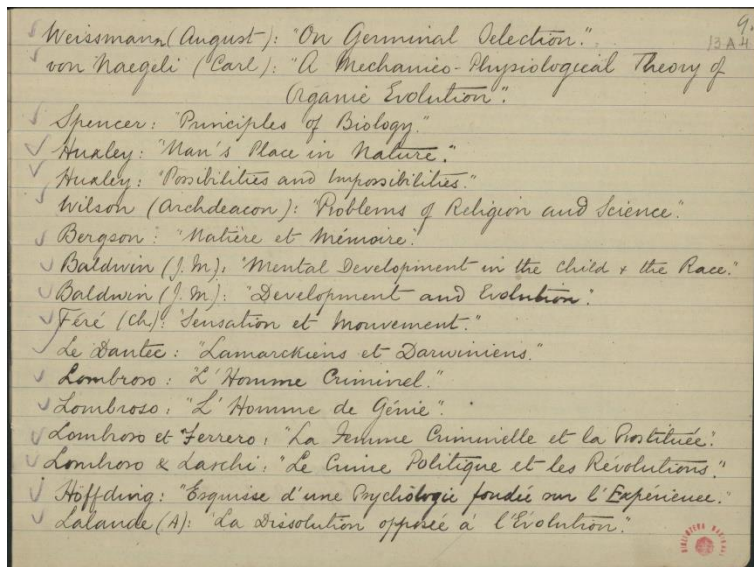 9.
13A4
Weissmann (August): "On Germinal Selection."
von Naegeli (Carl): "A Mechanico-Physiological Theory of
Organic Evolution".
Spencer: "Principles of Biology."
Huxley: "Man's Place in Nature."
Huxley: "Possibilities and Impossibilities."
Wilson (Archdeacon): "Problems of Religion and Science".
Bergson: "Matière et Mémoire".
Baldwin (J.M): "Mental Development in the Child & the Race."
Baldwin (J.M): "Development and Evolution".
Féré (Ch): "Sensation et Mouvement."
Le Dantec: "Lamarckiens et Darwiniens."
Lombroso: "L'Homme Criminel."
Lombroso: "L'Homme de Génie".
Lombroso et Ferrero: "La Femme Criminelle et la Prostituée".
Lombroso & Laschi: "Le Crime Politique et les Révolutions."
Höffding: "Esquisse d'une Psychologie fondée sur l'Expérience."
Lalande (A): "La Dissolution opposée à l'Évolution".